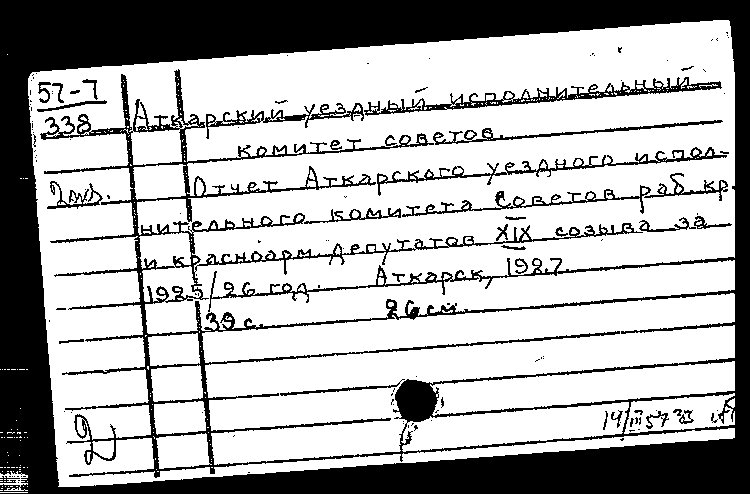 57-7
338
Аткарский уездный исполнительный
комитет советов.
2 экз.
Отчет Аткарского уездного испол-
нительного комитета Советов раб. кр.
и красноарм. депутатов XIX созыва за
1925/26 год. Аткарск, 1927.
39 с. 26 см.
2
14/III 57